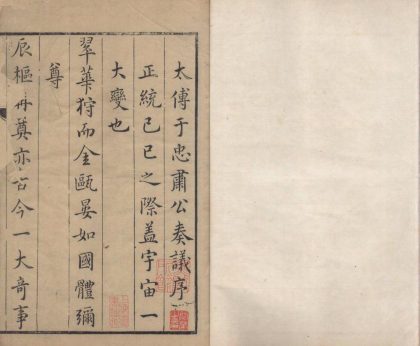 太傅于忠肅公奏議序
正統己巳之際蓋宇宙一
大變也
翠華狩而金甌晏如國體彌
尊
辰樞再奠亦古今一大奇事